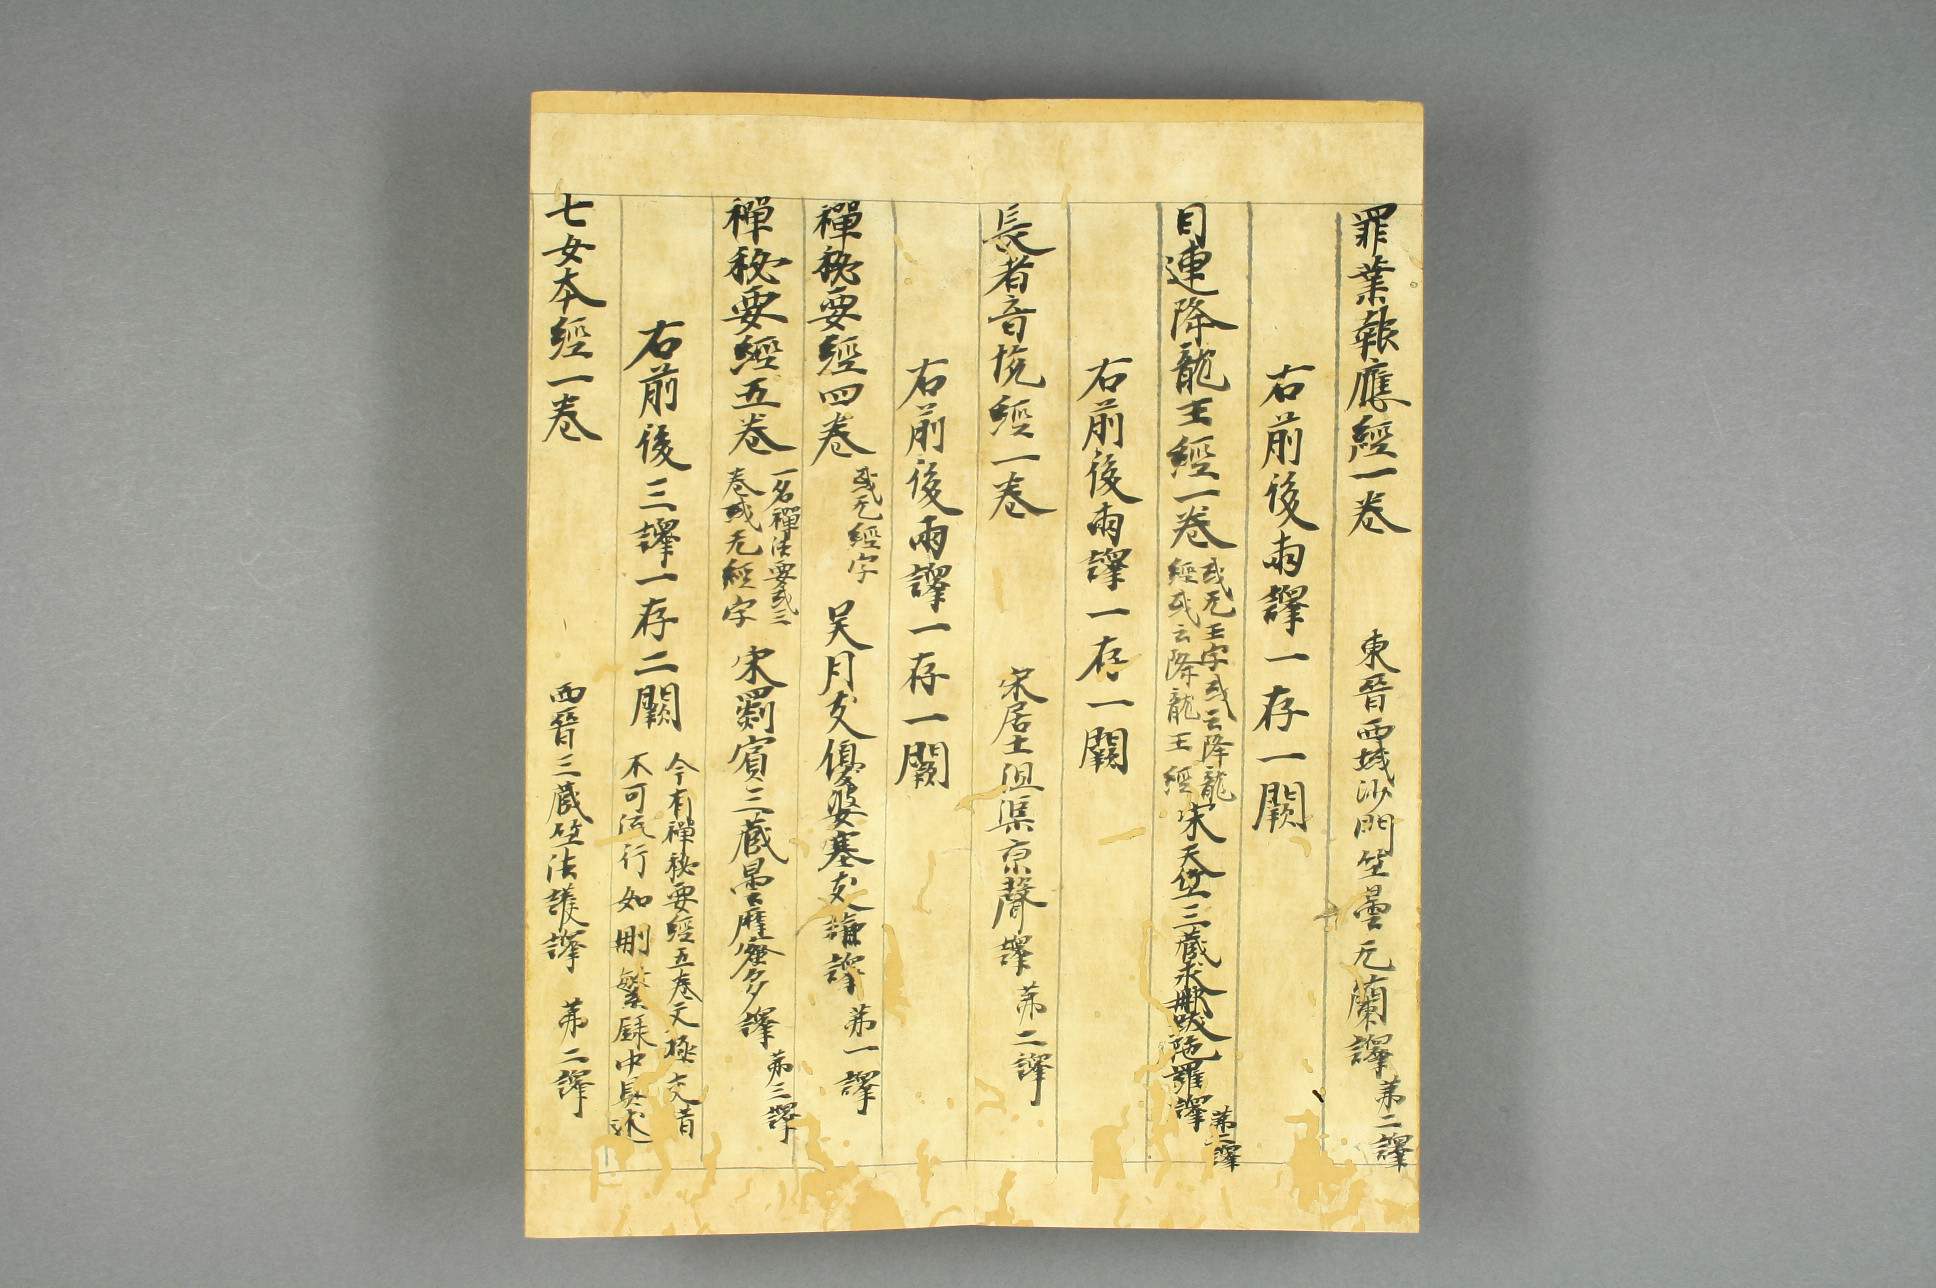 罪業報應經一卷 東晉西域沙門竺曇无蘭譯 苐二譯
右前後兩譯一存一闕
目連降龍王經一卷 或无王字或云降龍
經或云降龍王經 宋天竺三藏求那跋陁羅譯 苐二譯
右前後兩譯一存一闕
長者音恱經一卷 宋居士沮渠京聲譯 苐二譯
右前後兩譯一存一闕
禪秘要經四卷 或无經字 吴月支優婆塞支謙譯 苐一譯
禪秘要經五卷 一名禪法要或三
卷或无經字 宋罽賓三藏曇摩蜜多譯 苐三譯
右前後三譯一存二闕 今有禪秘要經五卷文極交昔
不可流行如刪繁録中具述
七女本經一卷 西晉三藏竺法護譯 苐二譯